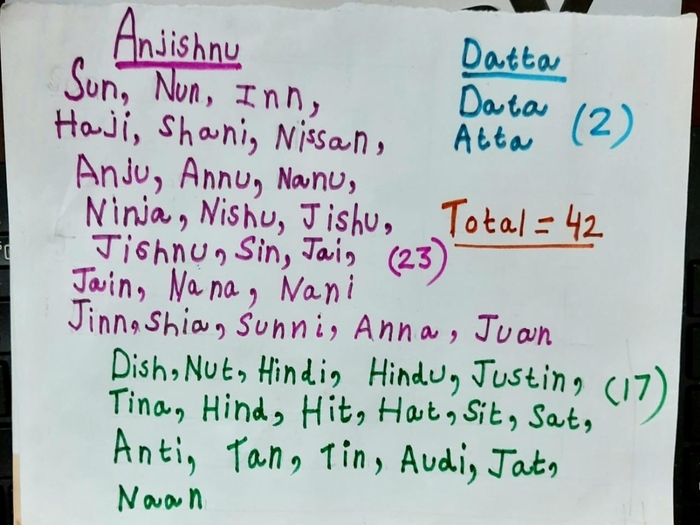 Anjishnu
Sun, Nun, Inn,
Haji, Shani, Nissan,
Anju, Annu, Nanu,
Ninja, Nishu, Jishu,
Jishnu, Sin, Jai, (23)
Jain, Nana, Nani
Jinn, Shia, Sunni, Anna, Juan
Datta
Data
Atta (2)
Total = 42
Dish, Nut, Hindi, Hindu, Justin, (17)
Tina, Hind, Hit, Hat, Sit, Sat,
Anti, Tan, Tin, Audi, Jat,
Naan